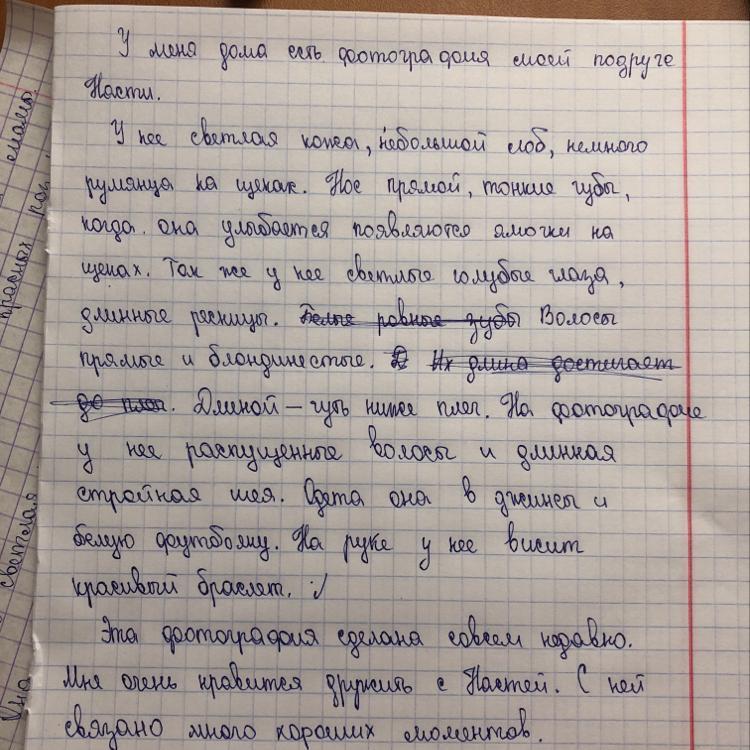 У меня дома есть фотография моей подруге
Насти.
У нее светлая кожа, небольшой лоб, немного
румянца на щеках. Нос прямой, тонкие губы,
когда она улыбается появляются ямочки на
щеках. Так же у нее светлые голубые глаза,
длинные ресницы. Белые ровные зубы Волосы
прямые и блондинестые. Их длина достигает
до плеч. Длиной – чуть ниже плеч. На фотографие
у нее распущенные волосы и длинная
стройная шея. Одета она в джинсы и
белую футболку. На руке у нее висит
красивый браслет. :)
Эта фотография сделана совсем недавно.
Мне очень нравится дружить с Настей. С ней
связано много хороших моментов.
светлая
красных